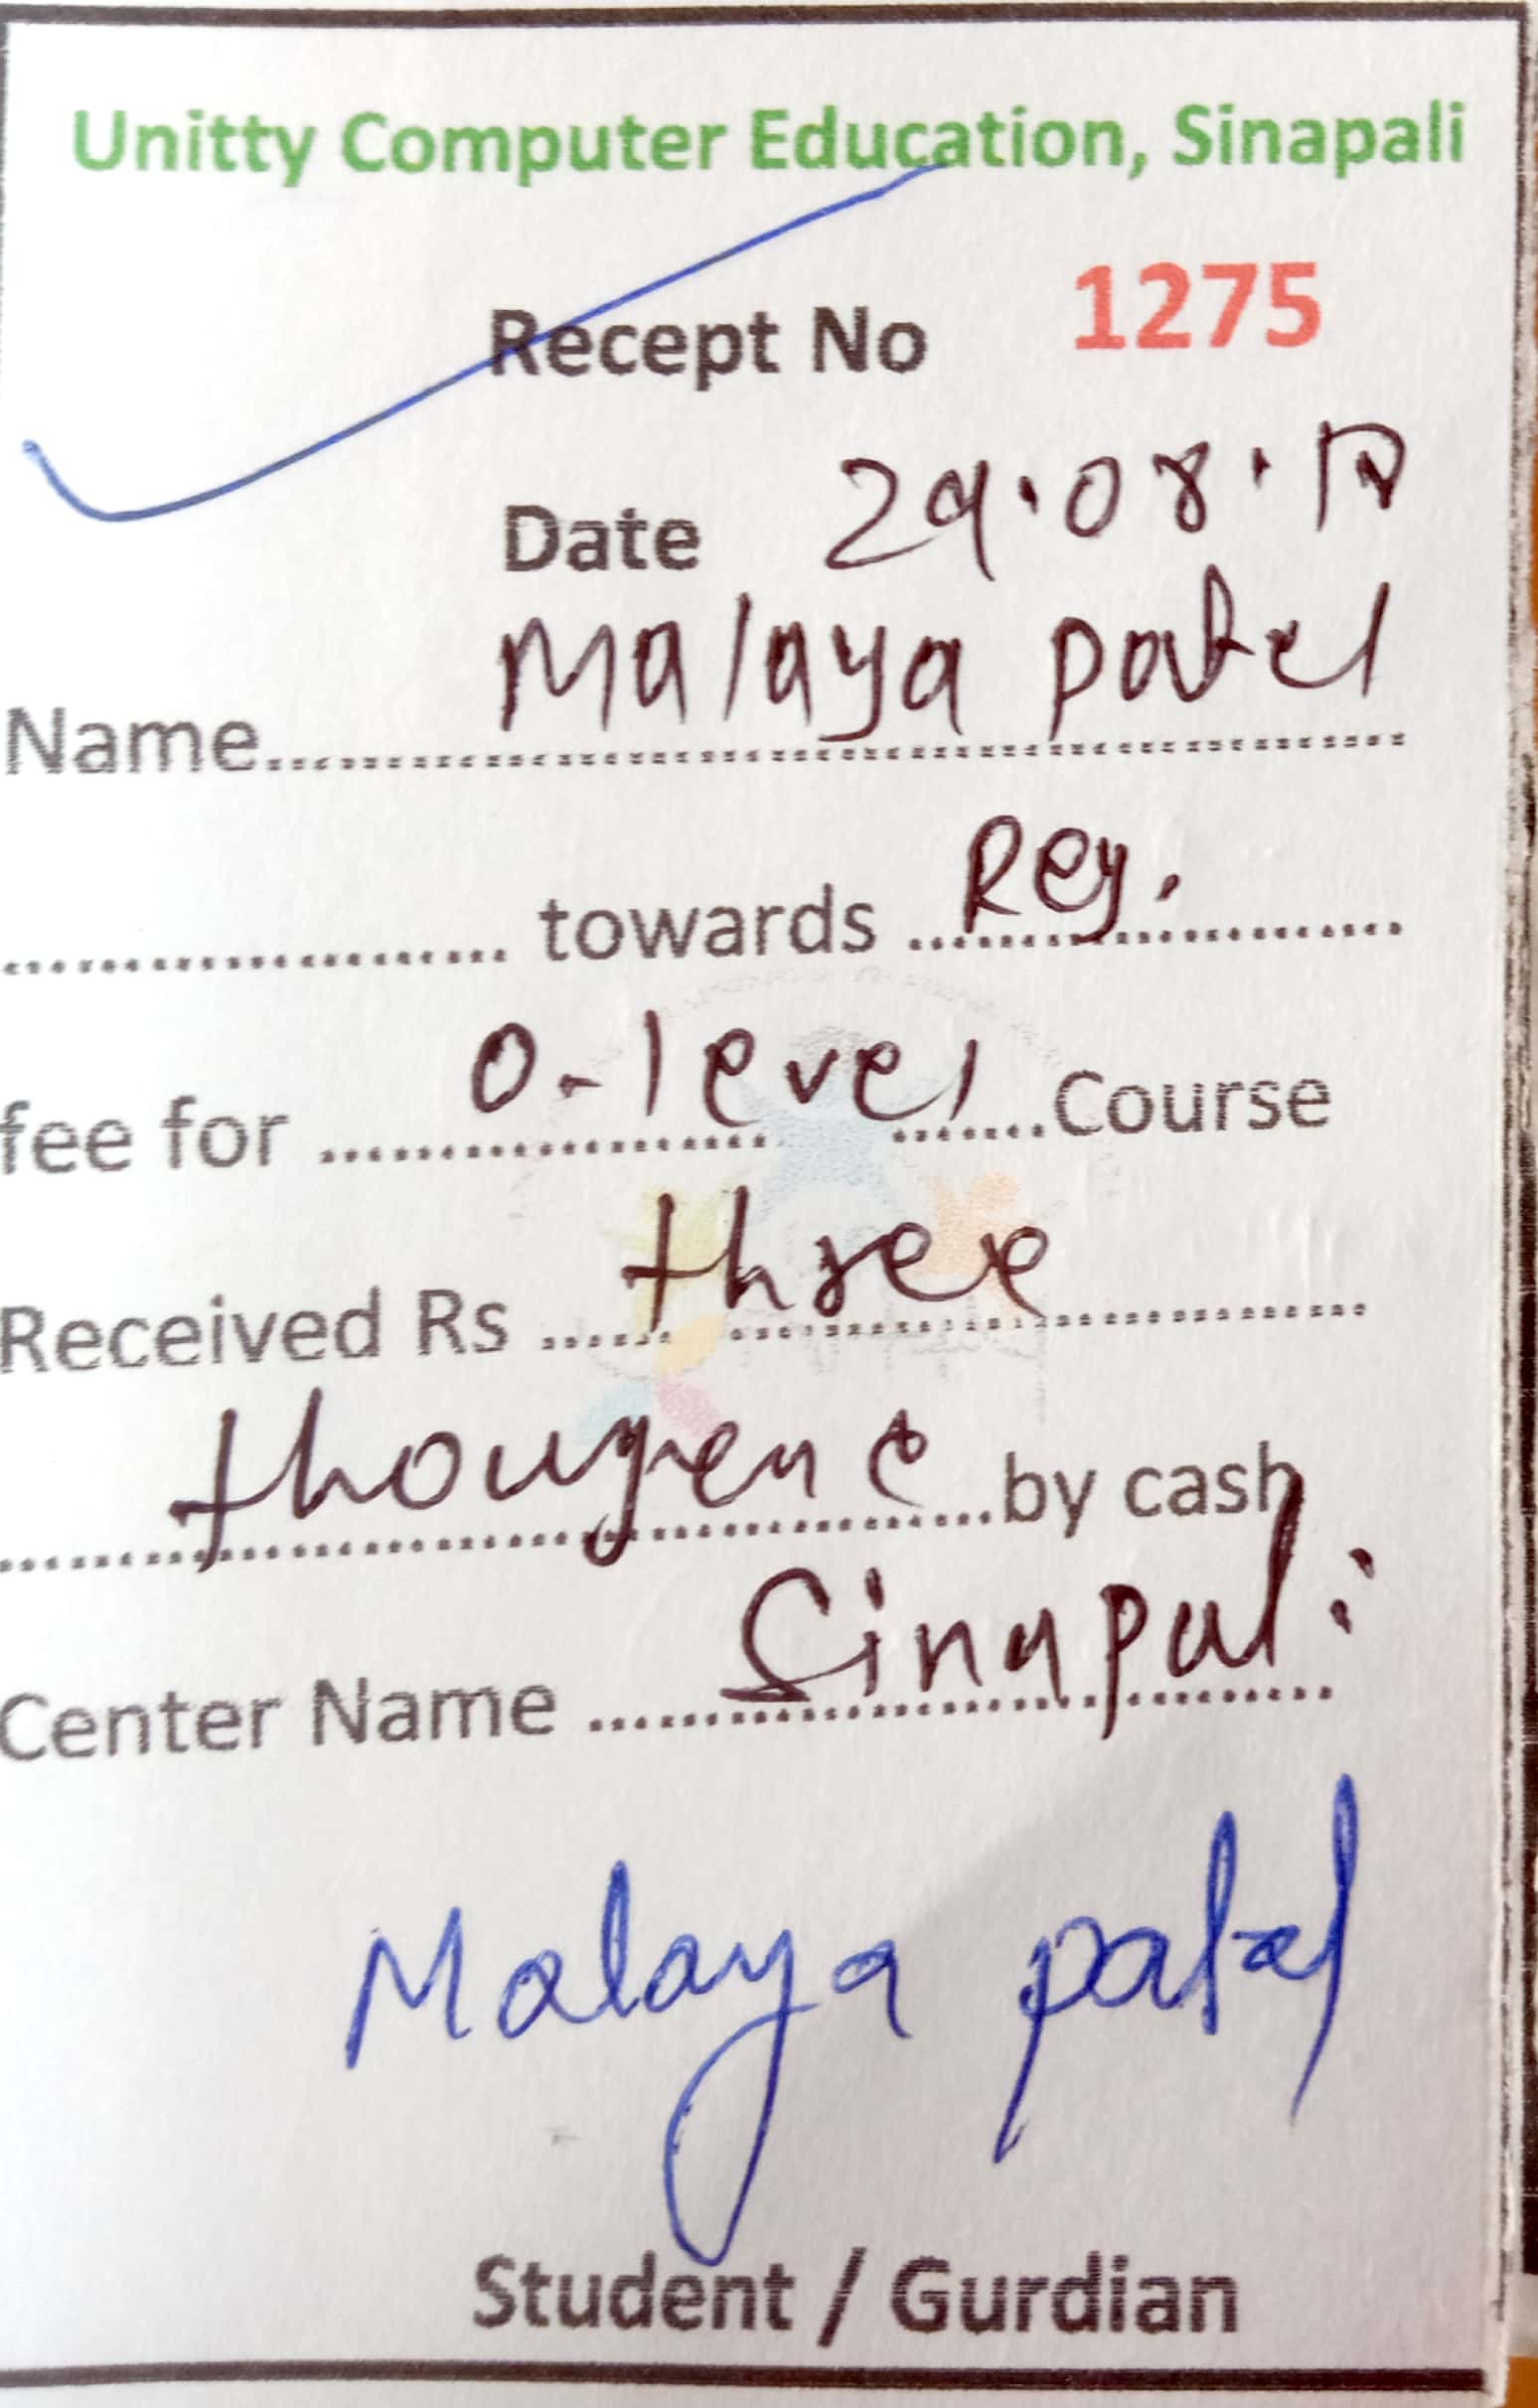 Unitty Computer Education, Sinapali
Recept No 1275
Date 29.08.
Malaya patel
Name
towards Reg.
fee for O-level Course
Received Rs three
by cash
Center Name Sinapali
Malaya patel
Student / Gurdian